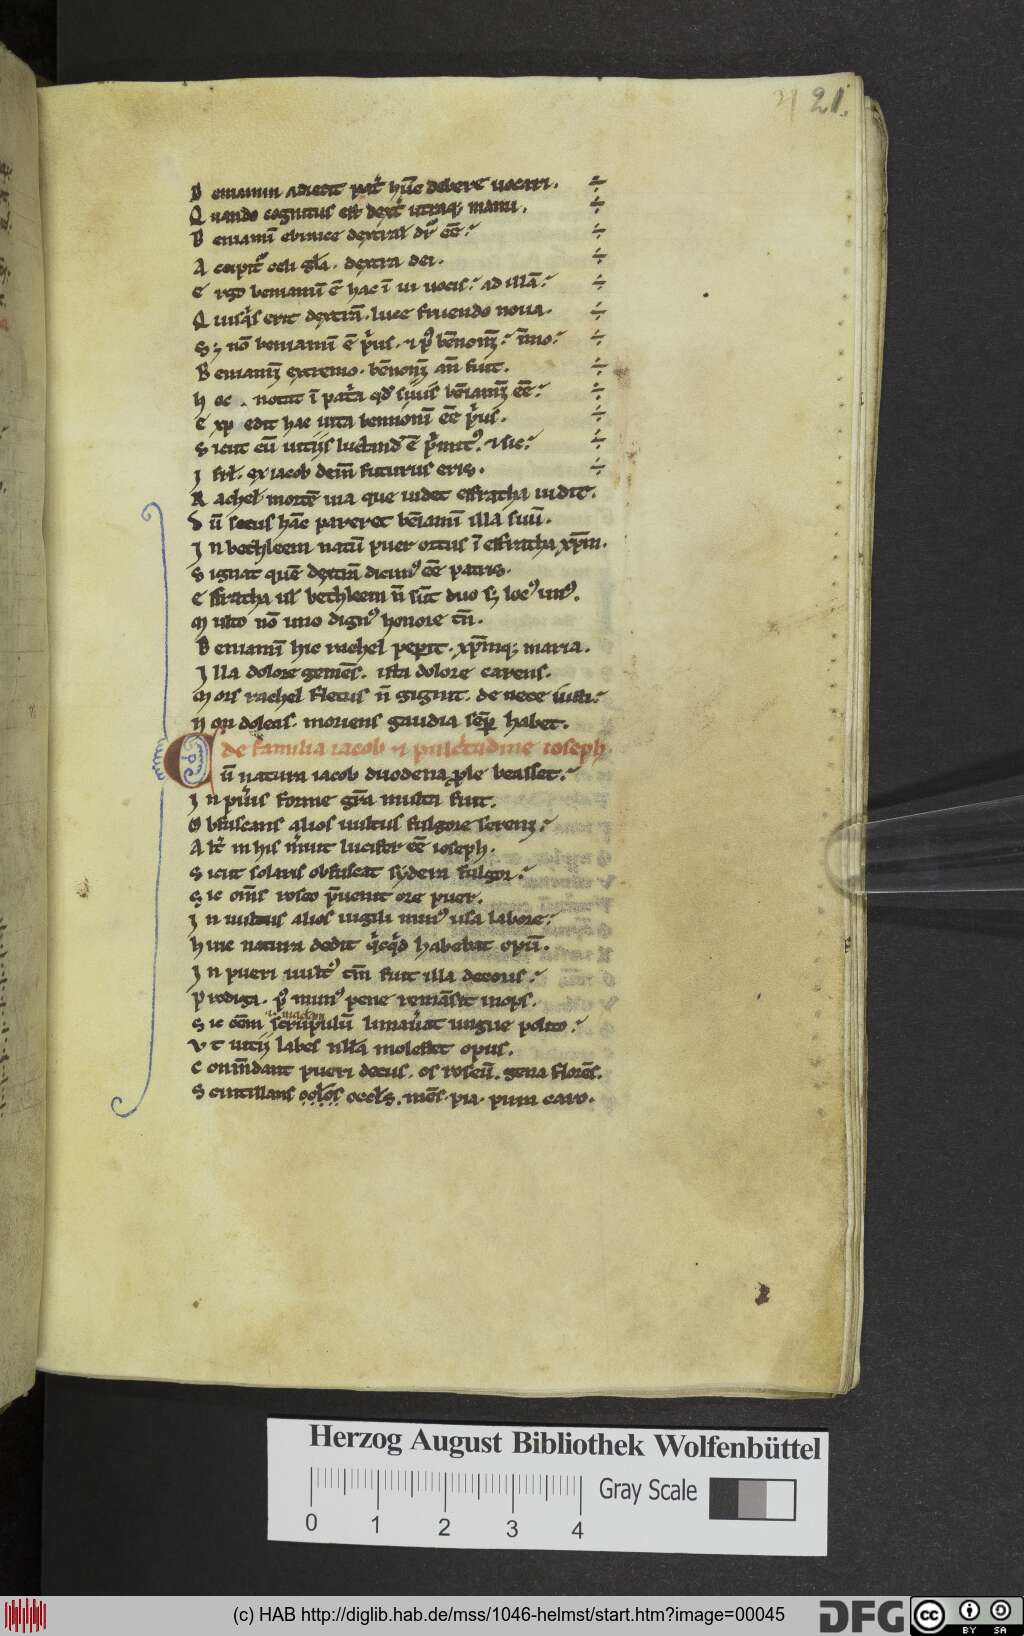 21.
B eniamin adiecit pat͛ hūc debere uocari. ÷
Q uando cognitus est dext͛ utraq; manu. ÷
B eniamī
A ccipit᷒ celi gl̄a. dextra dei. ÷
E rgo beniamī ē hac ī ui uocis. ad illā. ÷
Q uisq̇s erit dext̄m. luce fruendo noua. ÷
S ; nō beniamī ē p̓us. ÷
B eniamī extremo. fuit. ÷
h oc. notat ī pat̓a qd̄ ēē. ÷
E xp edit hac uita bennonī ēē p̓us. ÷
S icut cū uitijs ē ÷
I ex iacob futurus eris. ÷
R achel mortē uia que uidet effratha uidit.
D ū secus hāc pareret beniamī illa suū.
I n bethleem natū puer ortus ī effratha xp̄m.
S ignat quē dext̄m dicim᷒ ēē patris.
E ffratha ul̄ bethleem n̄ sūt duo s; loc᷒ un᷒.
M ulto nō uno dign᷒ honore tn̄.
B eniamī hic rachel peperit. xp̄mq; maria.
I lla dolore gemēs. ista dolore carens.
M ors rachel fletus n̄ gignit. de nece iusti
N on doleas. moriens gaudia semp habet.
de familia iacob & pulc̓tudine ioseph.
C ū natura iacob duodena ple beasset.
I n p̓mis forme gr̄a multa fuit.
O bfuscans alios uultus fulgore sereni
A lt͛ in his m̓uit lucifer ēē ioseph.
S icut solaris obfuscat sydera fulgor.
S ic om̄s roseo p̄uenit ore puer.
I n uultus alios uigili min᷒ usa labore
h uic natura dedit q̇cq̇d habebat opū.
I n pueri uult᷒ tm̄ fuit illa decoris
P rodiga. q᷒ min᷒ pene remāsit inops.
i. maclam
S ic om̄em scrupulū limauerat ungue polito
V t uitij labes nll̄a molestet opus.
C om̄dant pueri decus. os roseū. gena florēs.
S cintillans ocl̄os ocl̄s. mēs pia. pura caro.
Herzog August Bibliothek Wolfenbüttel
Gray Scale
0 1 2 3 4
(c) HAB http://diglib.hab.de/mss/1046-helmst/start.htm?image=00045
DFG
cc BY SA